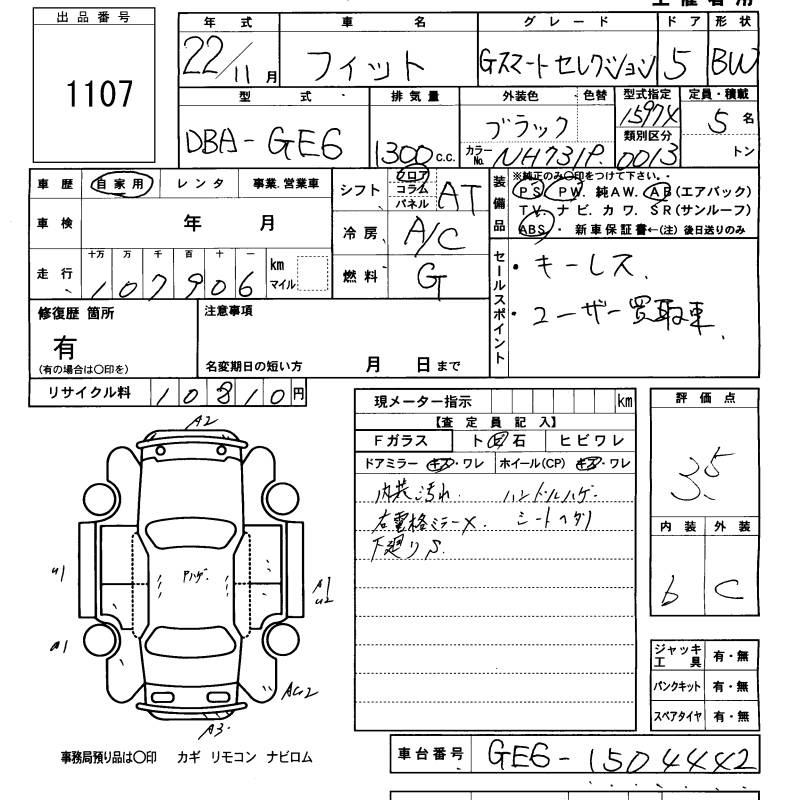 出品番号
1107
年式 車名 グレード ドア 形状
22/11月 フィット Gスマートセレクション 5 BW
型式 排気量 外装色 色替 型式指定 定員・積載
DBA-GE6 1300c.c. ブラック 15974 5名
カラーNo. NH731P. 類別区分 0013 トン
車歴 自家用 レンタ 事業.営業車
車検 年 月
走行 十万 万 千 百 十 一 km マイル
107906
シフト フロア コラム パネル AT
冷房 A/C
燃料 G
装備品
※純正のみ〇印をつけて下さい。
PS PW. 純AW. AB(エアバック)
TV. ナビ. カワ. SR(サンルーフ)
ABS. 新車保証書←(注) 後日送りのみ
セールスポイント
・キーレス.
・ユーザー買取車.
修復歴 箇所
有
(有の場合は〇印を)
注意事項
名変期日の短い方 月 日まで
リサイクル料 10810円
現メーター指示 km
【査定員記入】
Fガラス ト 石 ヒビワレ
ドアミラー キズ・ワレ ホイール(CP) キズ・ワレ
内装汚れ. ハンドルハゲ.
右電格ミラーX. シートヘタリ
下廻りS
評価点
3.5
内装 外装
b C
A2
u1
Pハゲ.
A1
U2
A1
AU2
A3
ジャッキ工具 有・無
パンクキット 有・無
スペアタイヤ 有・無
事務局預り品は〇印 カギ リモコン ナビロム
車台番号 GE6-1504442